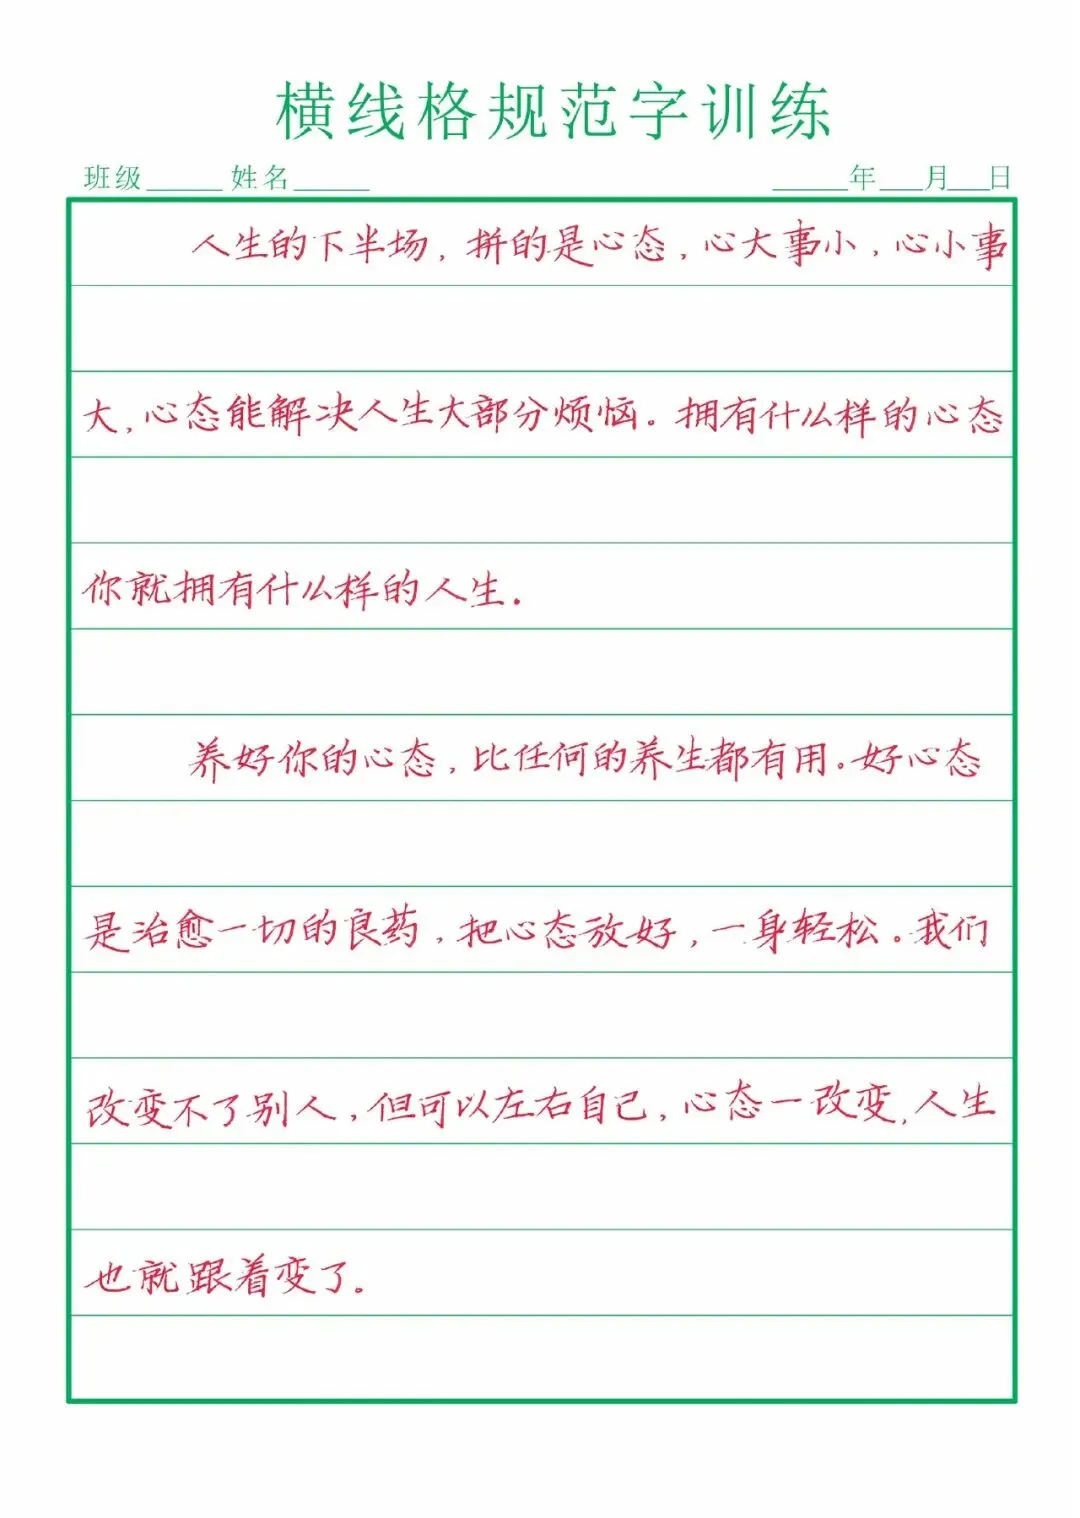 横线格规范字训练
班级_____ 姓名_____ _____年___月___日
人生的下半场，拼的是心态，心大事小，心小事
大，心态能解决人生大部分烦恼。拥有什么样的心态
你就拥有什么样的人生.
养好你的心态，比任何的养生都有用。好心态
是治愈一切的良药，把心态放好，一身轻松。我们
改变不了别人，但可以左右自己，心态一改变，人生
也就跟着变了。